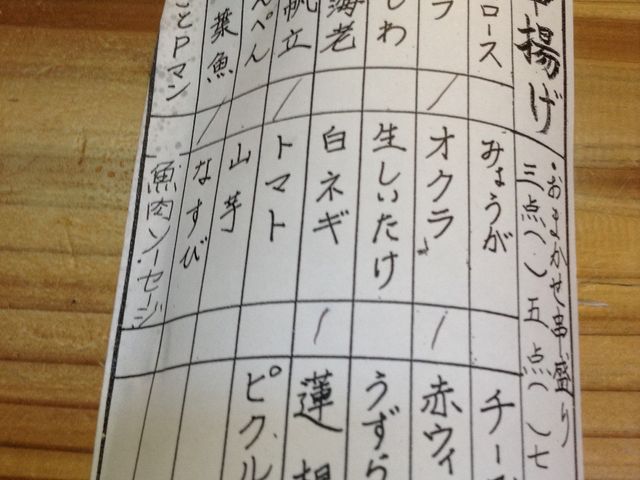 揚げ
・おまかせ串盛り
三点( ) 五点( ) 七
ロース
フ
しわ
海老
帆立
んぺん
葉魚
ことPマン
みょうが
オクラ
生しいたけ
白ネギ
トマト
山芋
なすび
魚肉ソーセージ
チー
赤ウィ
うずら
蓮根
ピクル